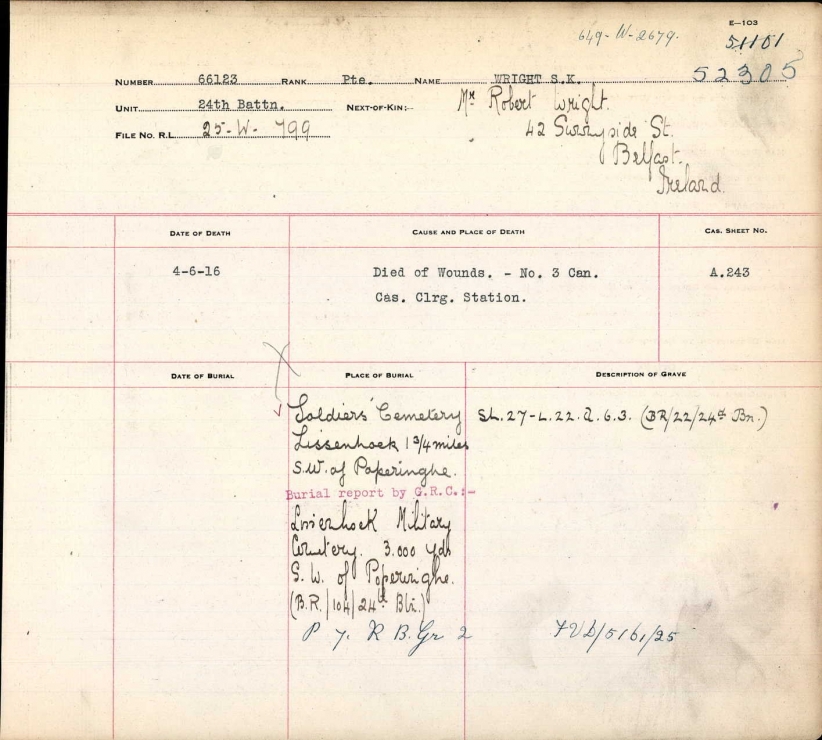 E-103
649-W-2679.
51101
52305
NUMBER 66123 RANK Pte. NAME WRIGHT S.K.
UNIT 24th Battn. NEXT-OF-KIN:- Mr. Robert Wright.
FILE NO. R.L. 25-W- 799
42 Sunnyside St.
Belfast.
Ireland.
DATE OF DEATH CAUSE AND PLACE OF DEATH CAS. SHEET NO.
4-6-16 Died of Wounds. - No. 3 Can. A.243
Cas. Clrg. Station.
DATE OF BURIAL PLACE OF BURIAL DESCRIPTION OF GRAVE
Soldiers' Cemetery Sh.27-L.22.Q.6.3. (BR/22/24th Bn.)
Lissenhoek 1 3/4 miles
S.W. of Poperinghe.
Burial report by G.R.C.:-
Lissenhoek Military
Cemetery. 3.000 yds
S. W. of Poperinghe.
(B.R./104/24th Btn.)
P 7. R B. Gr 2